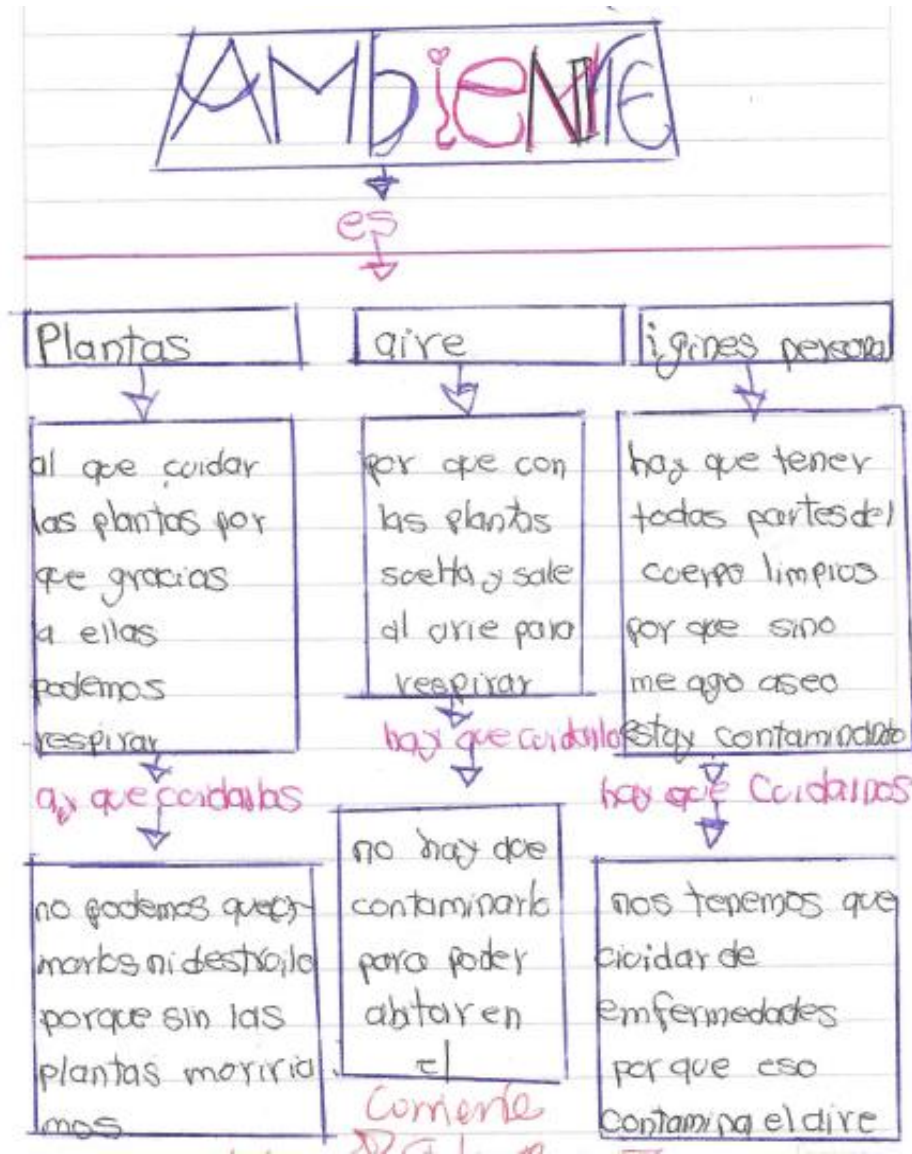 AMbiENtE
es
Plantas
al que cuidar
las plantas por
que gracias
a ellas
podemos
respirar
ay que cuidarlas
no podemos quer-
marlos ni destruilo
porque sin las
plantas moriria
mos
aire
por que con
las plantas
suelta y sale
al arie para
respirar
hay que cuidarlo
no hay que
contaminarlo
para poder
abtar en
el
Corriente
igines personal
hay que tener
todas partes del
cuerpo limpios
por que sino
me ago aseo
estay contaminando
hay que Cuidarnos
nos tenemos que
ciuidar de
emfermedades
por que eso
contamina el aire